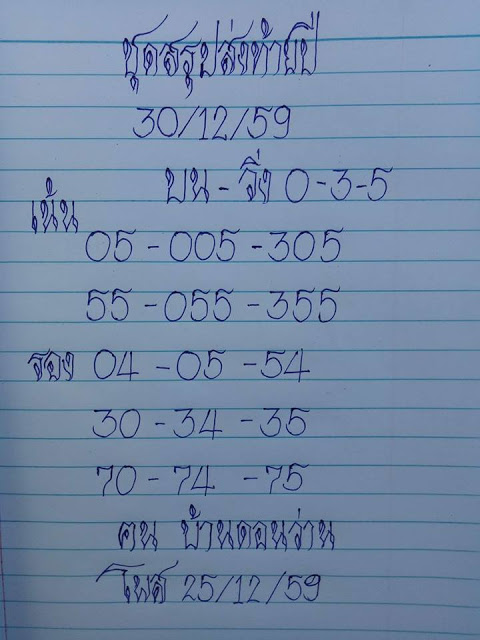 ชุดสรุปส่งท้ายปี
30/12/59
บน - วิ่ง 0-3-5
เน้น
05 - 005 - 305
55 - 055 - 355
รอง 04 - 05 - 54
30 - 34 - 35
70 - 74 - 75
คน บ้านดอนว่าน
โพส 25/12/59